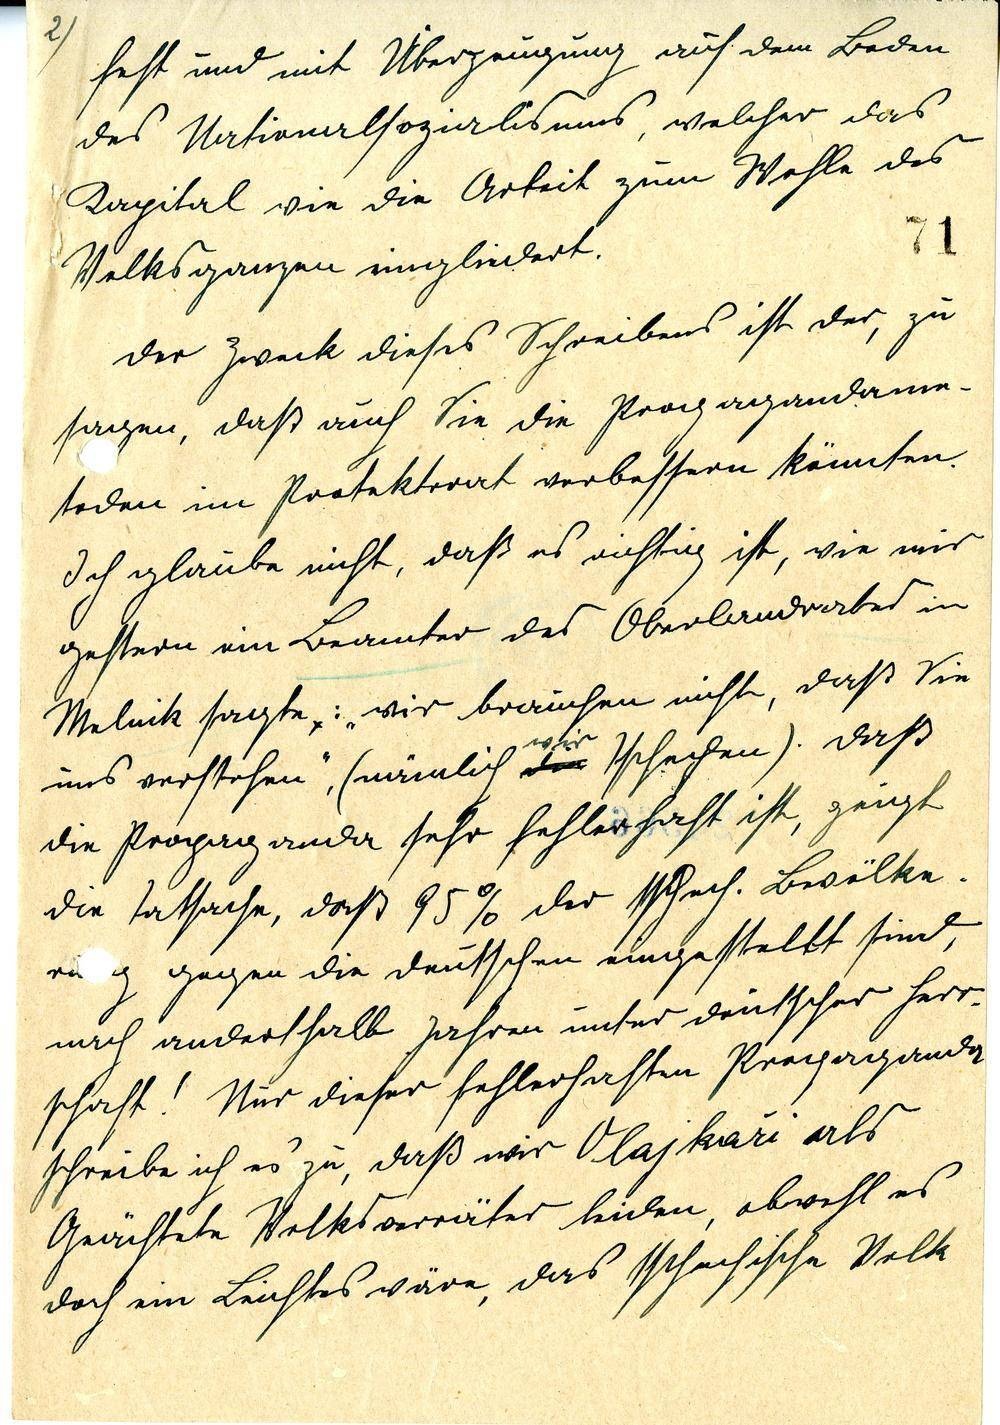 2)
fest und mit Überzeugung auf dem Boden
des Nationalsozialismus, welcher das
Kapital wie die Arbeit zum Wohle des
71
Volksganzen eingliedert.
Der Zweck dieses Schreibens ist der, zu
sagen, daß auch Sie die Propagandame-
toden im Protektorat verbessern könnten.
Ich glaube nicht, daß es richtig ist, wie mir
gestern ein Beamter des Oberlandrates in
Melnik sagte: „wir brauchen nicht, daß Sie
uns verstehen", (nämlich wir Tschechen). Daß
die Propaganda sehr fehlerhaft ist, zeigt
die Tatsache, daß 95% der tschech. Bevölke-
rung gegen die Deutschen eingestellt sind,
nach anderthalb Jahren unter deutscher Herr-
schaft! Nur dieser fehlerhaften Propaganda
schreibe ich es zu, daß wir Vlajkaři als
Geächtete Volksverräter leiden, obwohl es
doch ein Leichtes wäre, das tschechische Volk